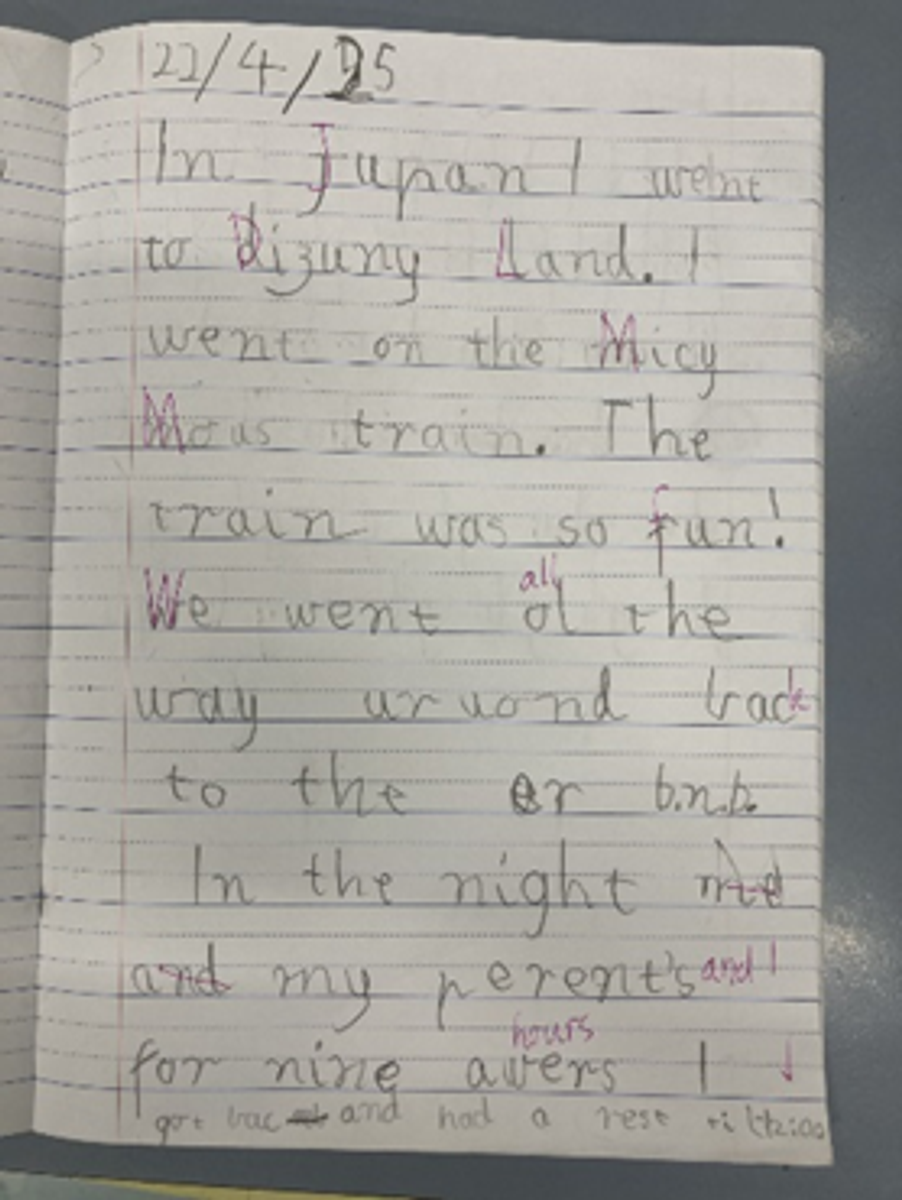 22/4/25
In Jupan I went
to Dizuny Land. I
went on the Micy
Mous train. The
train was so fun!
all
We went ol the
way uruond back
to the er b.n.b.
In the night
and my perent's and I
hours
for nine awers I
got bac and had a rest